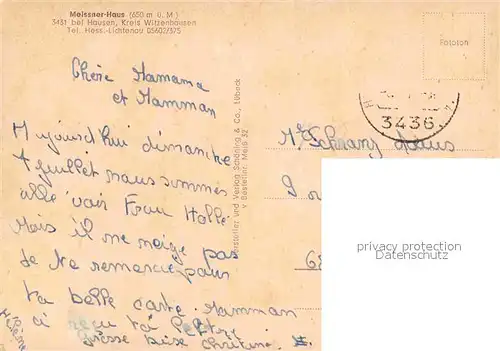 Meissner-Haus (650 m ü. M.)
3431 bei Hausen, Kreis Witzenhausen
Tel. Hess.-Lichtenau 05602/375
Fototon
3436
Chère Mamama
et Mamman
Aujourd'hui dimanche
juillet nous sommes
allé voir Frau Holle
Mais il ne neige pas
Je te remercie pour
ta belle carte. Mamman
a reçu ta lettre
Grosse bise Christine.
Hélène
Hersteller und Verlag Schöning & Co., Lübeck
Bestellnr. Meiß 32
Schranz
privacy protection
(AnsichtskartenVersand.com)